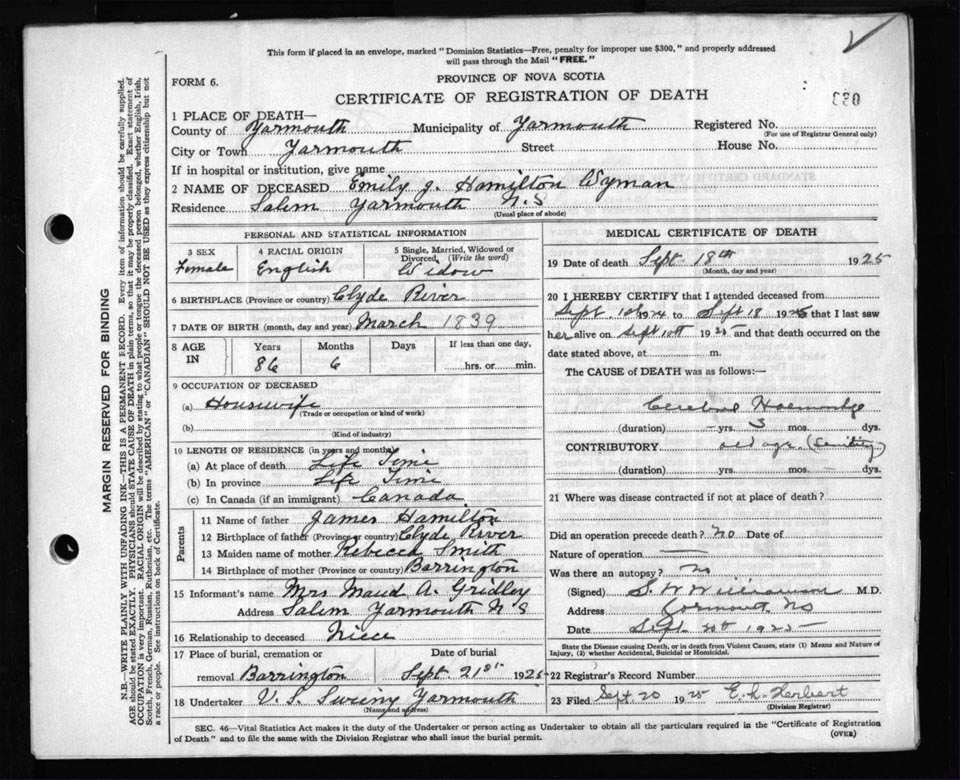 This form if placed in an envelope, marked "Dominion Statistics—Free, penalty for improper use $300," and properly addressed
will pass through the Mail "FREE."
FORM 6.
PROVINCE OF NOVA SCOTIA
CERTIFICATE OF REGISTRATION OF DEATH
1 PLACE OF DEATH—
County of Yarmouth Municipality of Yarmouth Registered No.
(For use of Registrar General only)
City or Town Yarmouth Street House No.
If in hospital or institution, give name
2 NAME OF DECEASED Emily J. Hamilton Wyman
Residence Salem Yarmouth N.S
(Usual place of abode)
PERSONAL AND STATISTICAL INFORMATION
3 SEX 4 RACIAL ORIGIN 5 Single, Married, Widowed or Divorced, (Write the word)
Female English Widow
6 BIRTHPLACE (Province or country) Clyde River
7 DATE OF BIRTH (month, day and year) March 1839
8 AGE IN Years Months Days If less than one day,
86 6 hrs. or min.
9 OCCUPATION OF DECEASED
(a) Housewife
(Trade or occupation or kind of work)
(b)
(Kind of industry)
10 LENGTH OF RESIDENCE (in years and months)
(a) At place of death Life Time
(b) In province Life Time
(c) In Canada (if an immigrant) Canada
Parents
11 Name of father James Hamilton
12 Birthplace of father (Province or country) Clyde River
13 Maiden name of mother Rebecca Smith
14 Birthplace of mother (Province or country) Barrington
15 Informant's name Mrs Maud A. Gridley
Address Salem Yarmouth N S
16 Relationship to deceased Niece
17 Place of burial, cremation or Date of burial
removal Barrington Sept. 21st 1925
18 Undertaker V. S. Yarmouth
(Name and address)
MEDICAL CERTIFICATE OF DEATH
19 Date of death Sept. 18th 1925
(Month, day and year)
20 I HEREBY CERTIFY that I attended deceased from
Sept 1924 to Sept 18 1925 that I last saw
her alive on Sept 10th 1925 and that death occurred on the
date stated above, at m.
The CAUSE of DEATH was as follows:—
Cerebral Haemorrhage
(duration) yrs. 3 mos. dys.
CONTRIBUTORY old age (Senility)
(duration) yrs. mos. dys.
21 Where was disease contracted if not at place of death?
Did an operation precede death? No Date of
Nature of operation
Was there an autopsy? No
(Signed) S. W. Williamson M.D.
Address Yarmouth, NS
Date Sept. 20th 1925
State the disease causing Death, or in death from Violent Causes, state (1) Means and Nature of
Injury, (2) whether Accidental, Suicidal or Homicidal.
22 Registrar's Record Number
23 Filed Sept. 20 1925 E. L. Herbert
(Division Registrar)
SEC. 46—Vital Statistics Act makes it the duty of the Undertaker or person acting as Undertaker to obtain all the particulars required in the "Certificate of Registration
of Death" and to file the same with the Division Registrar who shall issue the burial permit.
(OVER)
MARGIN RESERVED FOR BINDING
N.B.—WRITE PLAINLY WITH UNFADING INK—THIS IS A PERMANENT RECORD. Every item of information should be carefully supplied.
AGE should be stated EXACTLY. PHYSICIANS should STATE CAUSE OF DEATH in plain terms, so that it may be properly classified. Exact statement of
OCCUPATION is very important. RACIAL ORIGIN will be described by stating to what people or tongue the deceased person belonged, whether English, Irish,
Scotch, French, German, Russian, Ruthenian, etc. The terms "AMERICAN" or "CANADIAN" SHOULD NOT BE USED as they express citizenship but not
a race or people. See instructions on back of Certificate.